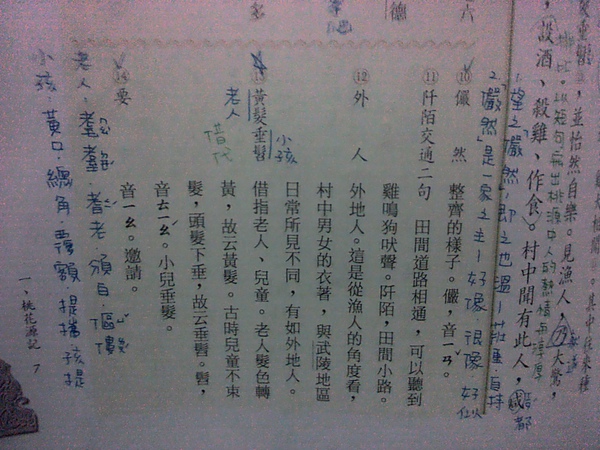 並怡然自樂。見漁人，乃大驚，
設酒、殺雞、作食。村中聞有此人，咸
都
望之儼然，即之也溫－莊重自持
儼然是一家之主－好像 很像 好似
⑩儼　然　整齊的樣子。儼，音ㄧㄢˇ。
⑪阡陌交通二句　田間道路相通，可以聽到
雞鳴狗吠聲。阡陌，田間小路。
⑫外　人　外地人。這是從漁人的角度看，
村中男女的衣著，與武陵地區
日常所見不同，有如外地人。
⑬黃髮垂髫　借指老人、兒童。老人髮色轉
小孩
老人
借代
黃，故云黃髮。古時兒童不束
髮，頭髮下垂，故云垂髫。髫，
音ㄊㄧㄠˊ。小兒垂髮。
⑭要　音ㄧㄠ。邀請。
老人：耄耋 耆老 頒白 傴僂
小孩：黃口 總角 垂髫 提攜 孩提
一、桃花源記　7
六
德